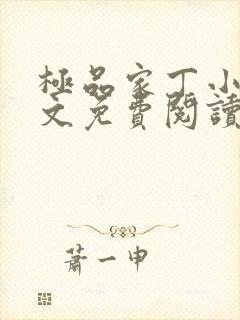 極品家丁小
文免費閱讀
蕭一申